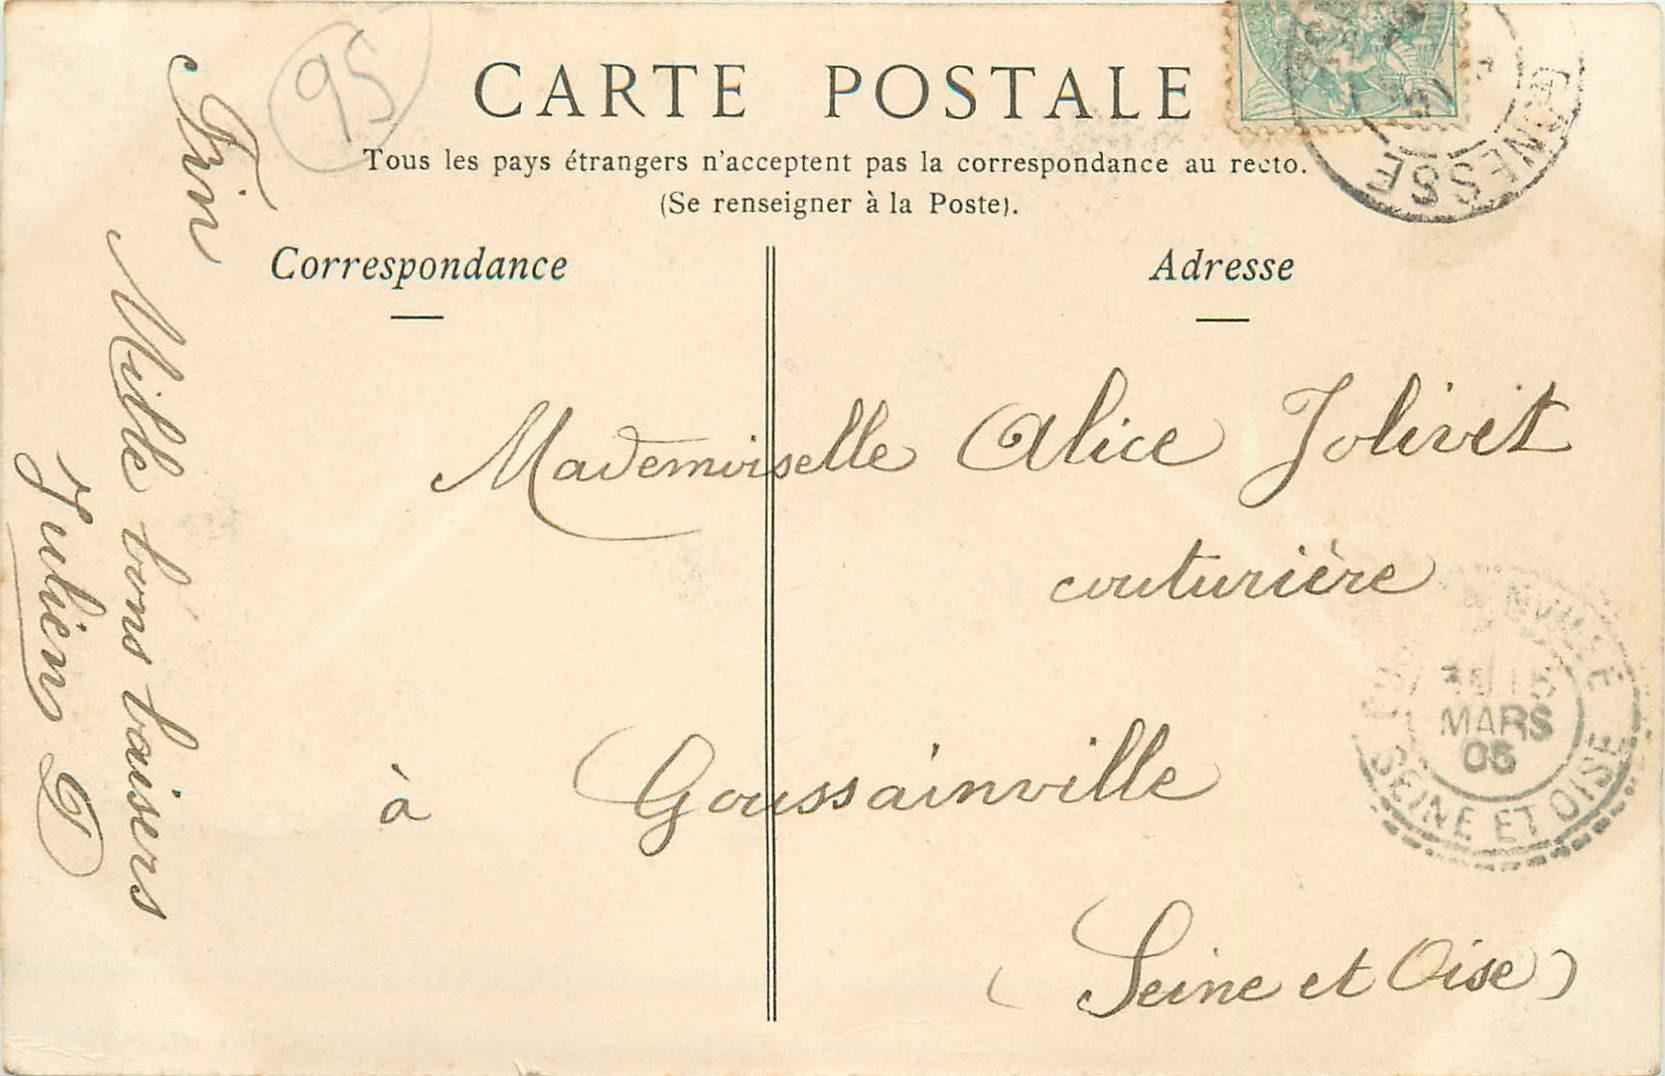 95
CARTE POSTALE
Tous les pays étrangers n'acceptent pas la correspondance au recto.
(Se renseigner à la Poste).
GONESSE
Correspondance
Adresse
Fin
Mille bons baisers
Julien D
Mademoiselle Alice Jolivet
couturière
à Goussainville
(Seine et Oise)
MARS
05
SEINE ET OISE